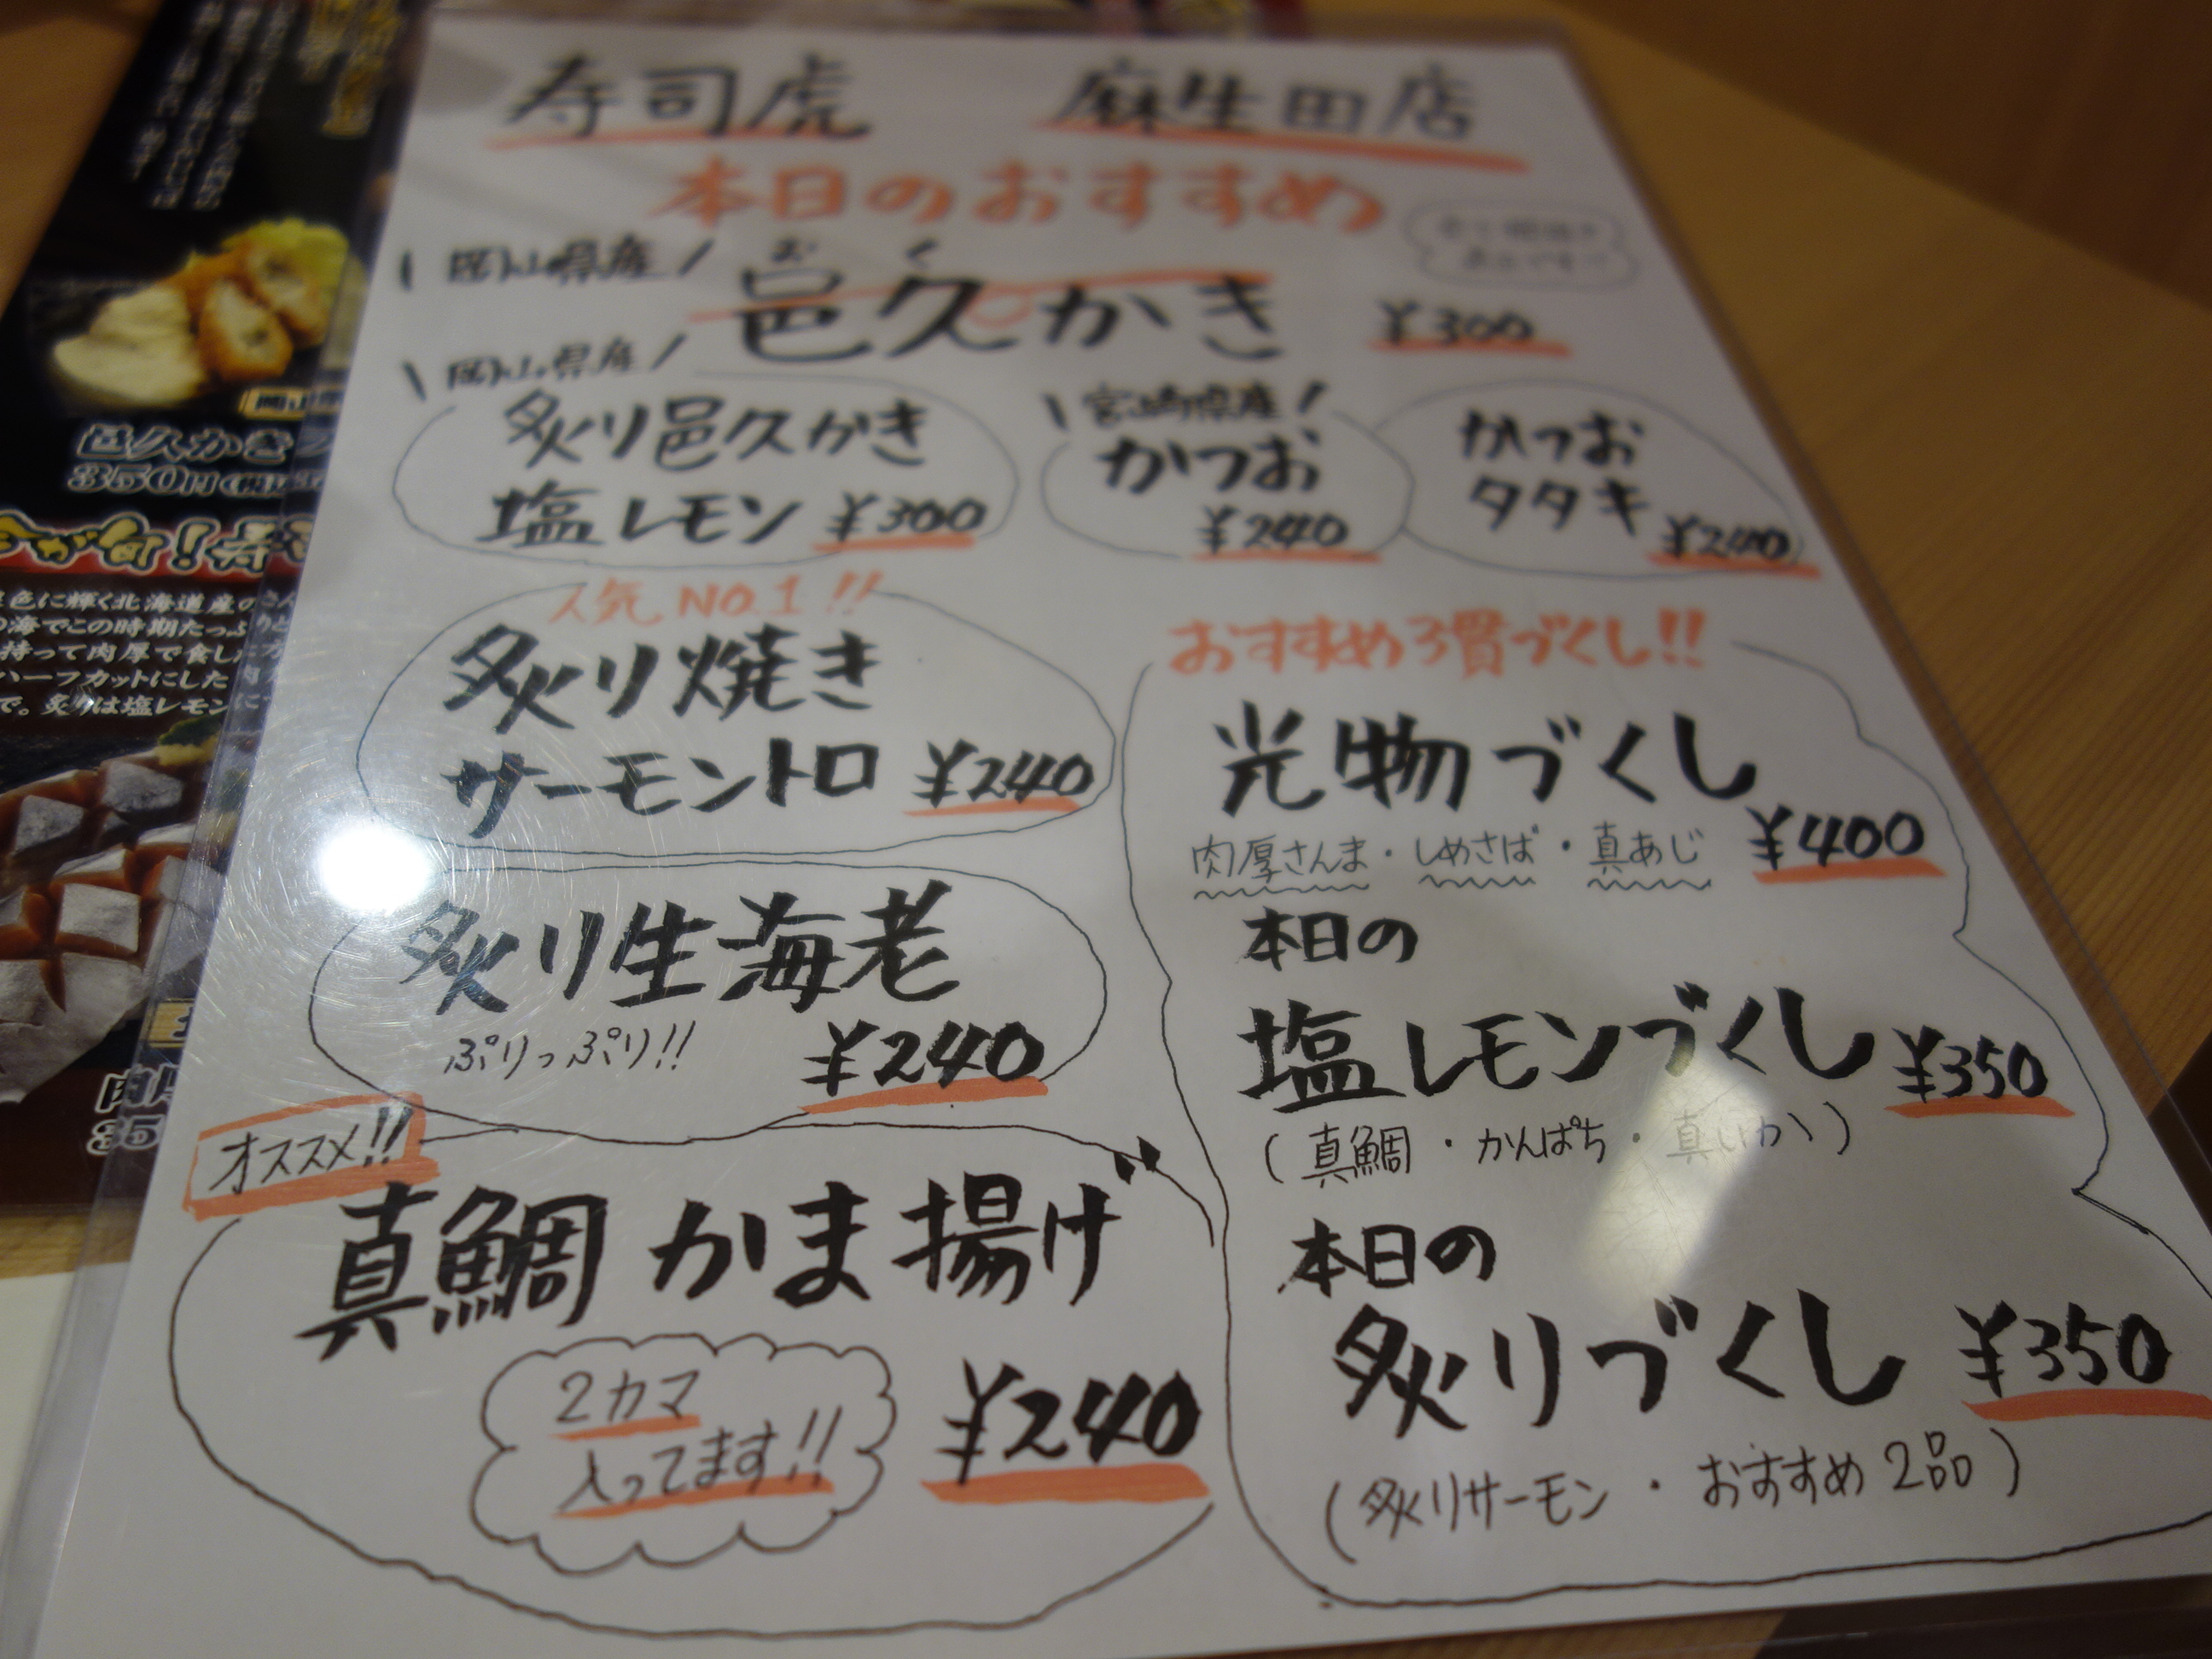 寿司虎 麻生田店
本日のおすすめ
岡山県産
おく
邑久かき ¥300
岡山県産
炙り邑久かき
塩レモン ¥300
宮崎県産
かつお
¥240
かつお
タタキ ¥240
人気NO.1!!
炙り焼き
サーモントロ ¥240
炙り生海老
ぷりっぷり!!
¥240
オススメ!!
真鯛かま揚げ
2カマ
入ってます!!
¥240
おすすめ3貫づくし!!
光物づくし
¥400
肉厚さんま・しめさば・真あじ
本日の
塩レモンづくし ¥350
(真鯛・かんぱち・真いか)
本日の
炙りづくし ¥350
(炙りサーモン・おすすめ2品)
邑久かき
350円
色に輝く北海道産の
海でこの時期たっぷ
持って肉厚で食し
ハーフカットにした
で。炙りは塩レモン